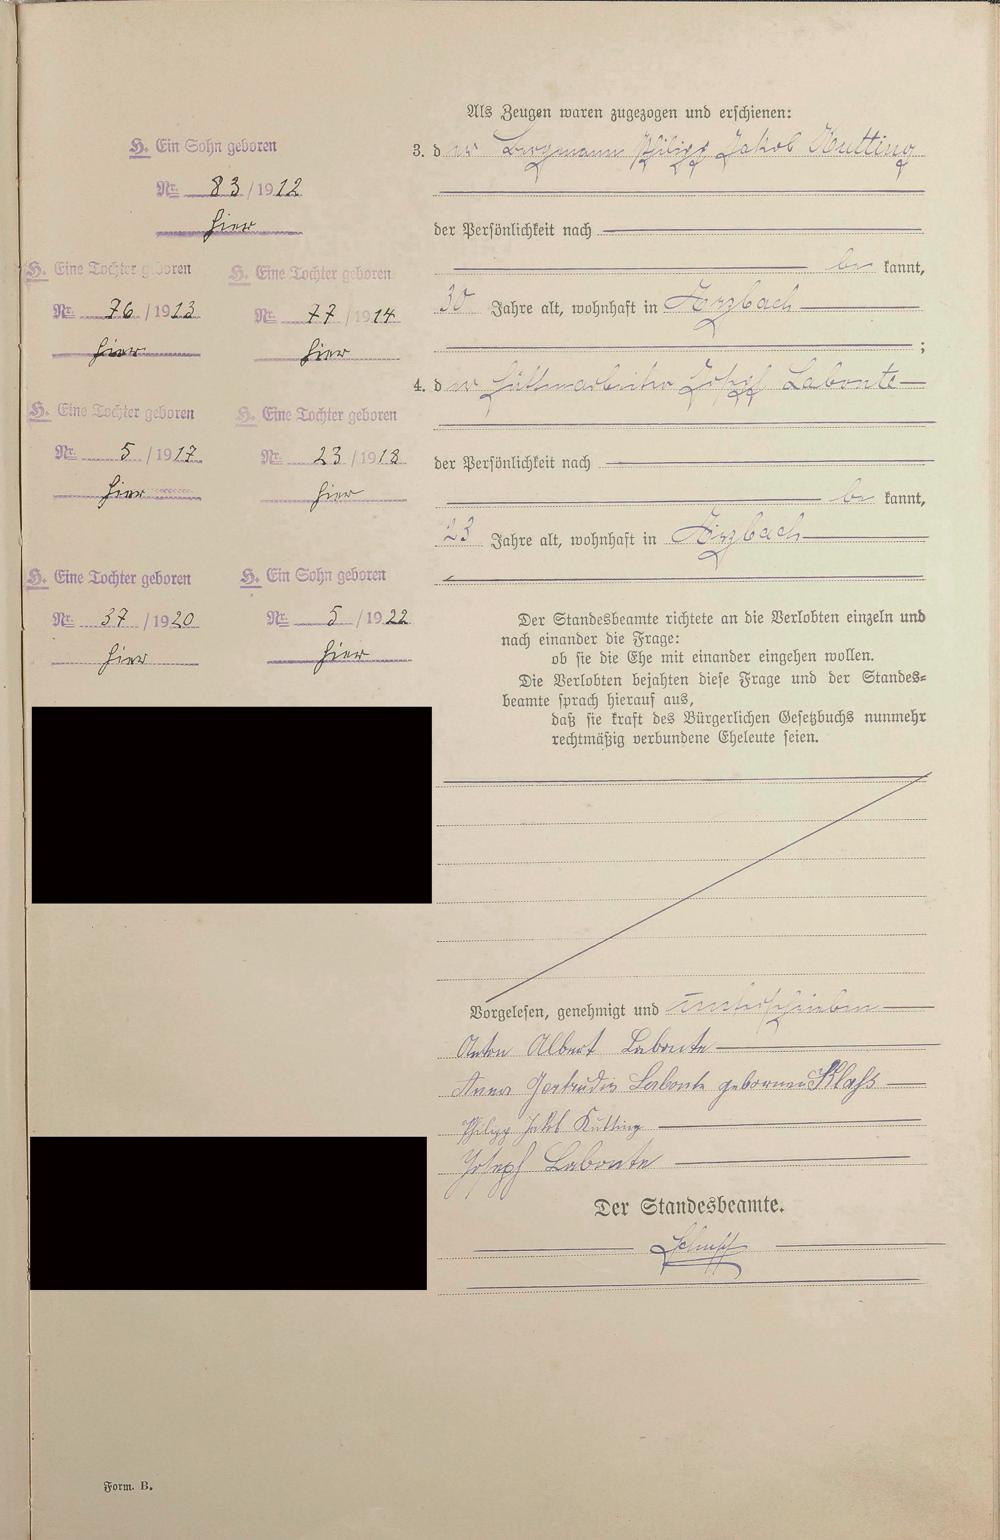 H. Ein Sohn geboren
Nr. 83/1912
hier
H. Eine Tochter geboren
Nr. 76/1913
hier
H. Eine Tochter geboren
Nr. 77/1914
hier
H. Eine Tochter geboren
Nr. 5/1917
hier
H. Eine Tochter geboren
Nr. 23/1918
hier
H. Eine Tochter geboren
Nr. 37/1920
hier
H. Ein Sohn geboren
Nr. 5/1922
hier
Als Zeugen waren zugezogen und erschienen:
3. der Bergmann Philipp Jakob Kutting
der Persönlichkeit nach
be kannt,
30 Jahre alt, wohnhaft in
;
4. der Hüttenarbeiter Josef Labonte
der Persönlichkeit nach
be kannt,
23 Jahre alt, wohnhaft in
Der Standesbeamte richtete an die Verlobten einzeln und
nach einander die Frage:
ob sie die Ehe mit einander eingehen wollen.
Die Verlobten bejahten diese Frage und der Standes=
beamte sprach hierauf aus,
daß sie kraft des Bürgerlichen Gesetzbuchs nunmehr
rechtmäßig verbundene Eheleute seien.
Vorgelesen, genehmigt und unterschrieben
Anton Albert Labonte
Anna Gertrudis Labonte geborene Klahs
Philipp Jakob Kutting
Joseph Labonte
Der Standesbeamte.
Form. B.